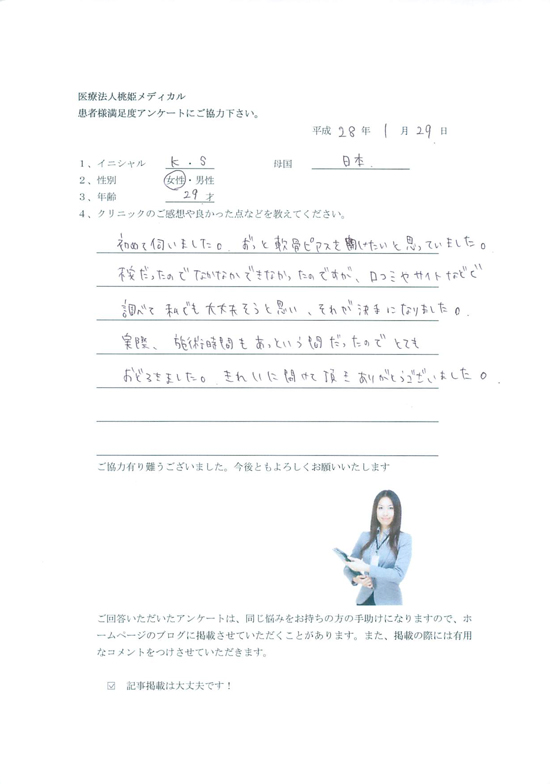 医療法人桃姫メディカル
患者様満足度アンケートにご協力下さい。
平成 28 年 1 月 29 日
1、イニシャル K.S 母国 日本
2、性別 女性・男性
3、年齢 29 才
4、クリニックのご感想や良かった点などを教えてください。
初めて伺いました。ずっと軟骨ピアスを開けたいと思っていました。
だったのでなかなかできなかったのですが、口コミやサイトなどで
調べて 私でも大丈夫そうと思い、それが決まになりました。
実際、施術時間もあっという間だったのでとても
おどろきました。きれいに開けて頂きありがとうございました。
ご協力有り難うございました。今後ともよろしくお願いいたします
ご回答いただいたアンケートは、同じ悩みをお持ちの方の手助けになりますので、ホ
ームページのブログに掲載させていただくことがあります。また、掲載の際には有用
なコメントをつけさせていただきます。
☑ 記事掲載は大丈夫です！